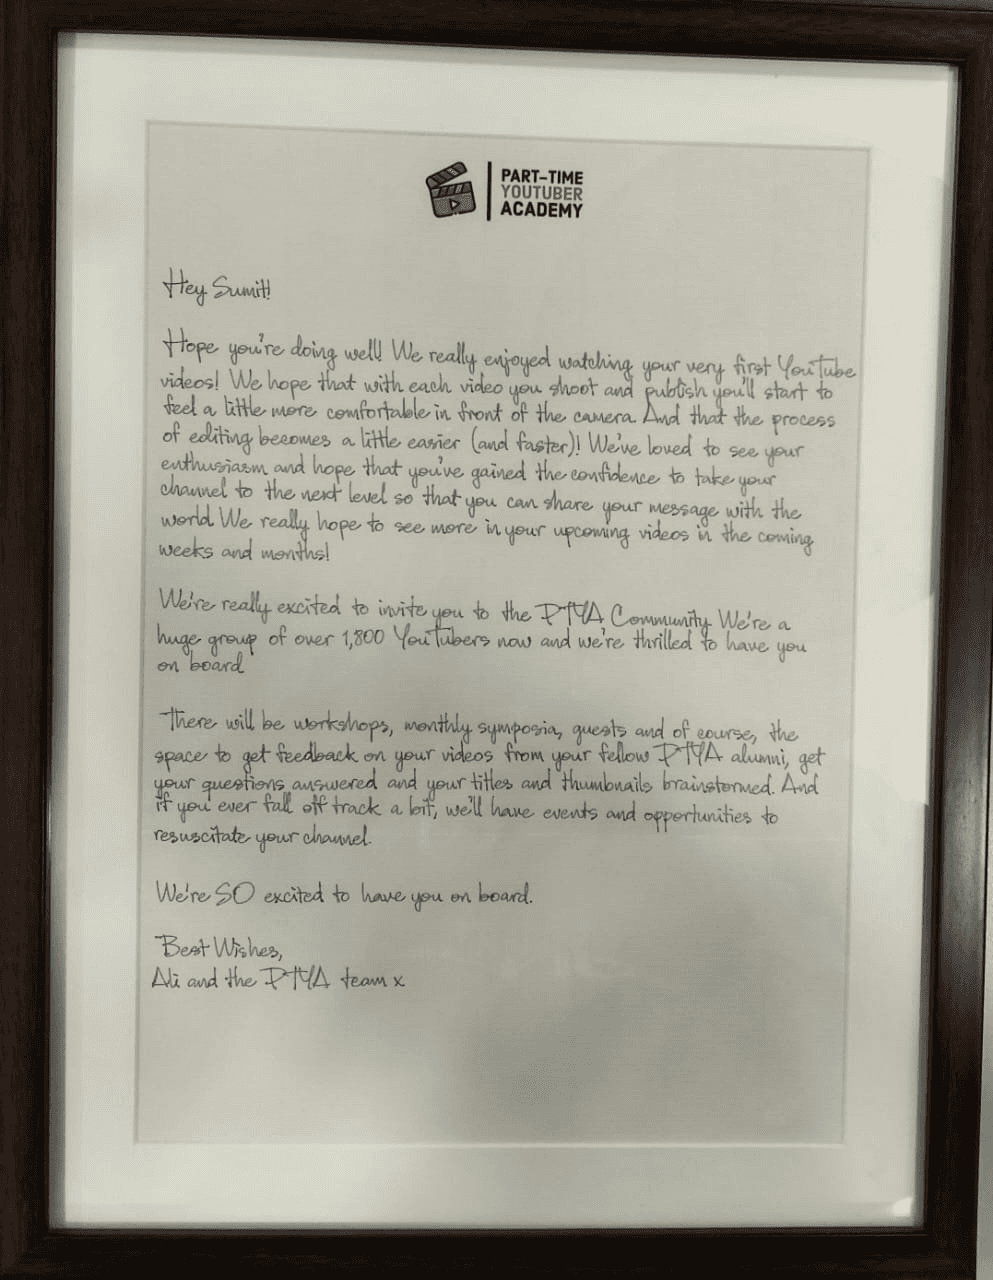 PART-TIME
YOUTUBER
ACADEMY
Hey Sumit!
Hope you're doing well! We really enjoyed watching your very first YouTube
videos! We hope that with each video you shoot and publish you'll start to
feel a little more comfortable in front of the camera. And that the process
of editing becomes a little easier (and faster)! We've loved to see your
enthusiasm and hope that you've gained the confidence to take your
channel to the next level so that you can share your message with the
world. We really hope to see more in your upcoming videos in the coming
weeks and months!
We're really excited to invite you to the PTYA Community. We're a
huge group of over 1,800 YouTubers now and we're thrilled to have you
on board.
There will be workshops, monthly symposia, guests and of course, the
space to get feedback on your videos from your fellow PTYA alumni, get
your questions answered and your titles and thumbnails brainstormed. And
if you ever fall off track a bit, we'll have events and opportunities to
resuscitate your channel.
We're SO excited to have you on board.
Best Wishes,
Ali and the PTYA team x